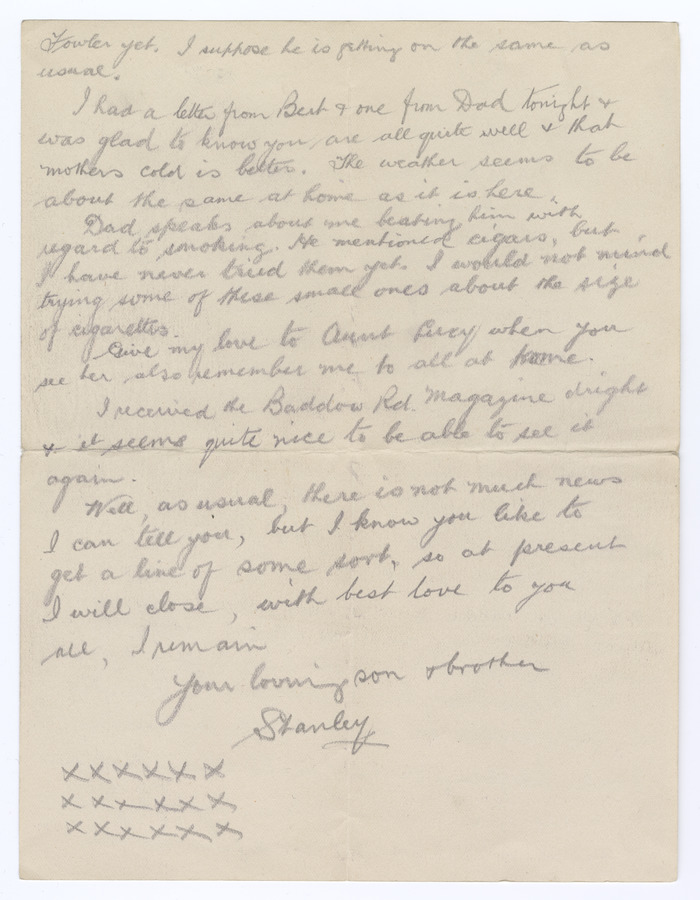 Fowler yet. I suppose he is getting on the same as
usual.
I had a letter from Bert & one from Dad tonight &
was glad to know you are all quite well & that
mothers cold is better. The weather seems to be
about the same at home as it is here.
Dad speaks about me beating him with
regard to smoking. He mentioned cigars, but
I have never tried them yet. I would not mind
trying some of these small ones about the size
of cigarettes.
Give my love to Aunt Lucy when you
see her also remember me to all at home.
I received the Baddow Rd. Magazine alright
& it seems quite nice to be able to see it
again.
Well, as usual, there is not much news
I can tell you, but I know you like to
get a line of some sort, so at present
I will close, with best love to you
all, I remain
Your loving son & brother
Stanley
xxxxxx
xxxxxx
xxxxxx